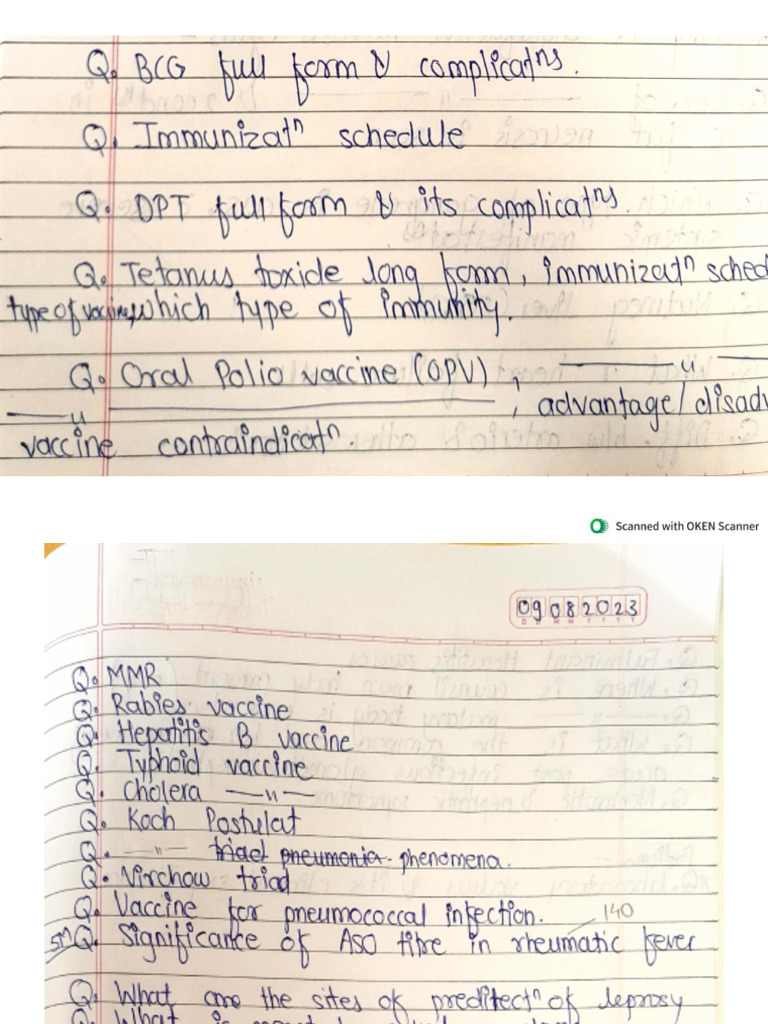 Q. BCG full form & complicatns.
Q. Immunizatn schedule
Q. DPT full form & its complicatns.
Q. Tetanus toxide long form, immunizatn sched
type of vaccine, which type of immunity.
Q. Oral Polio vaccine (OPV), —〃—
—〃— , advantage/disadv
vaccine contraindicatn.
Scanned with OKEN Scanner
09082023
Q. MMR
Q. Rabies vaccine
Q. Hepatitis B vaccine
Q. Typhoid vaccine
Q. Cholera —〃—
Q. Koch Postulat
Q. —〃— triad pneumonia phenomena.
Q. Virchow triad
Q. Vaccine for pneumococcal infection.
140
Q. Significance of ASO titre in rheumatic fever
Q. What are the sites of preditectn of leprosy
Q. What is